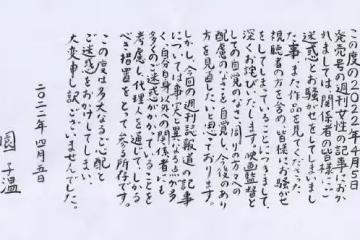 この度2022年4月5日
発売号の週刊女性の記事にお
れましては関係者の皆様にご
迷惑とお騒がせをしてしまいまし
た事、また作品を見てくださった
視聴者の方を含めご皆様にお騒がせ
をしてしまっていることにつきまして、
深くお詫びいたします。映画監督と
しての自覚のなさ、周りの方々への
配慮のなさを自覚し、今後のあり
方を見直したいと思っております。
しかし、今回の週刊誌報道の記事
については事実と異なる点が多
く、自分自身以外への関係者にも
多くのご迷惑がかかっていることを
考慮し、代理人を通じて、しかる
べき措置をとって参る所存です。
この度は多大なるご心配と
ご迷惑をおかけしてしまい、
大変申し訳ございませんでした。
二〇二二年 四月五日
園 子温